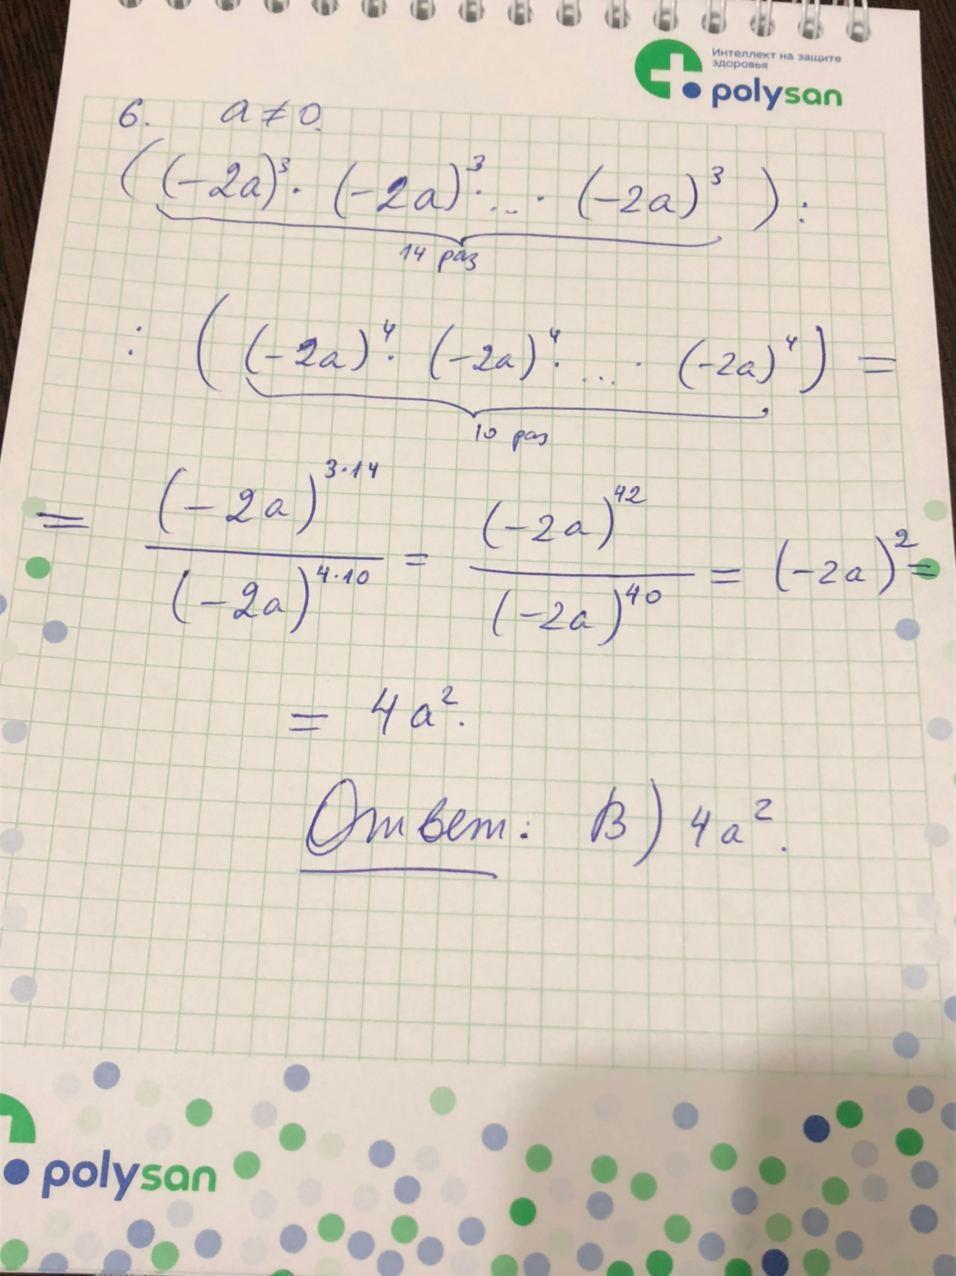 Интеллект на защите
здоровья
polysan
6. a ≠ 0.
((-2a)³ · (-2a)³ · ... · (-2a)³) :
14 раз
: ((-2a)⁴ · (-2a)⁴ · ... · (-2a)⁴) =
10 раз
= (-2a)^(3·14) / (-2a)^(4·10) = (-2a)^42 / (-2a)^40 = (-2a)² =
= 4a².
Ответ: В) 4a².
polysan